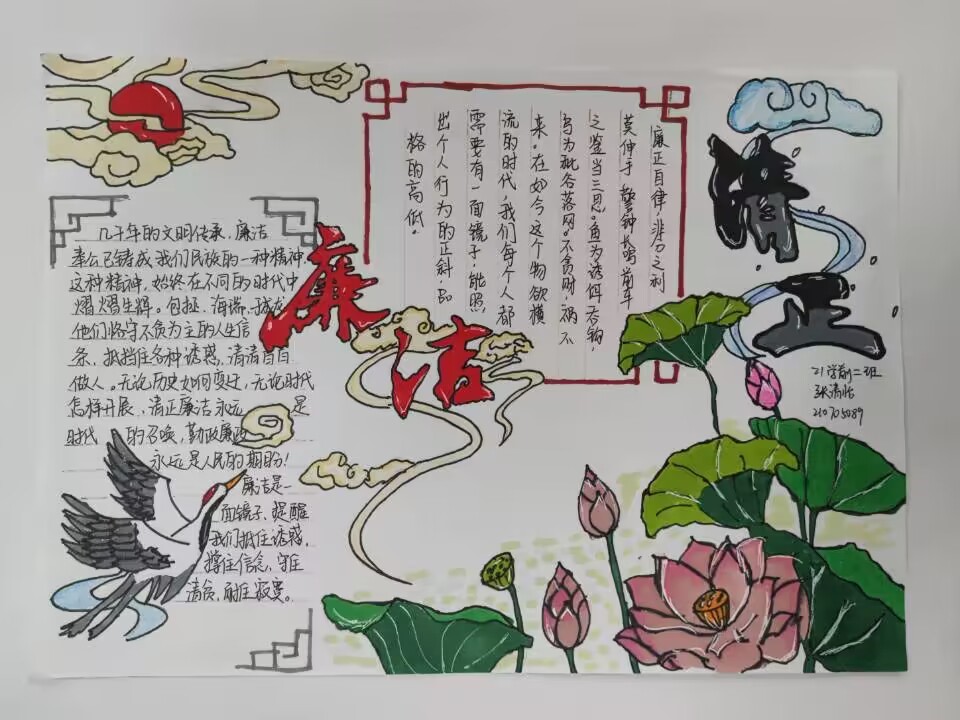 廉洁
清正
廉正自律,非分之利
莫伸手,警钟长鸣,前车
之鉴当三思。鱼为诱饵吞钩,
鸟为秕谷落网。不贪财,祸不
来。在如今这个物欲横
流的时代,我们每个人都
需要有一面镜子,能照
出个人行为的正斜,品
格的高低。
几千年的文明传承,廉洁
奉公已铸成我们民族的一种精神,
这种精神,始终在不同的时代中
熠熠生辉。包拯,海瑞,于成龙
他们恪守不贪为主的人生信
条,抵挡住各种诱惑,清清白白
做人。无论历史如何变迁,无论时代
怎样开展,清正廉洁永远是
时代的召唤,勤政廉政
永远是人民的期盼!
廉洁是一
面镜子,提醒
我们抵住诱惑,
撑住信念,守住
清贫,耐住寂寞。
21学前二班
210705089